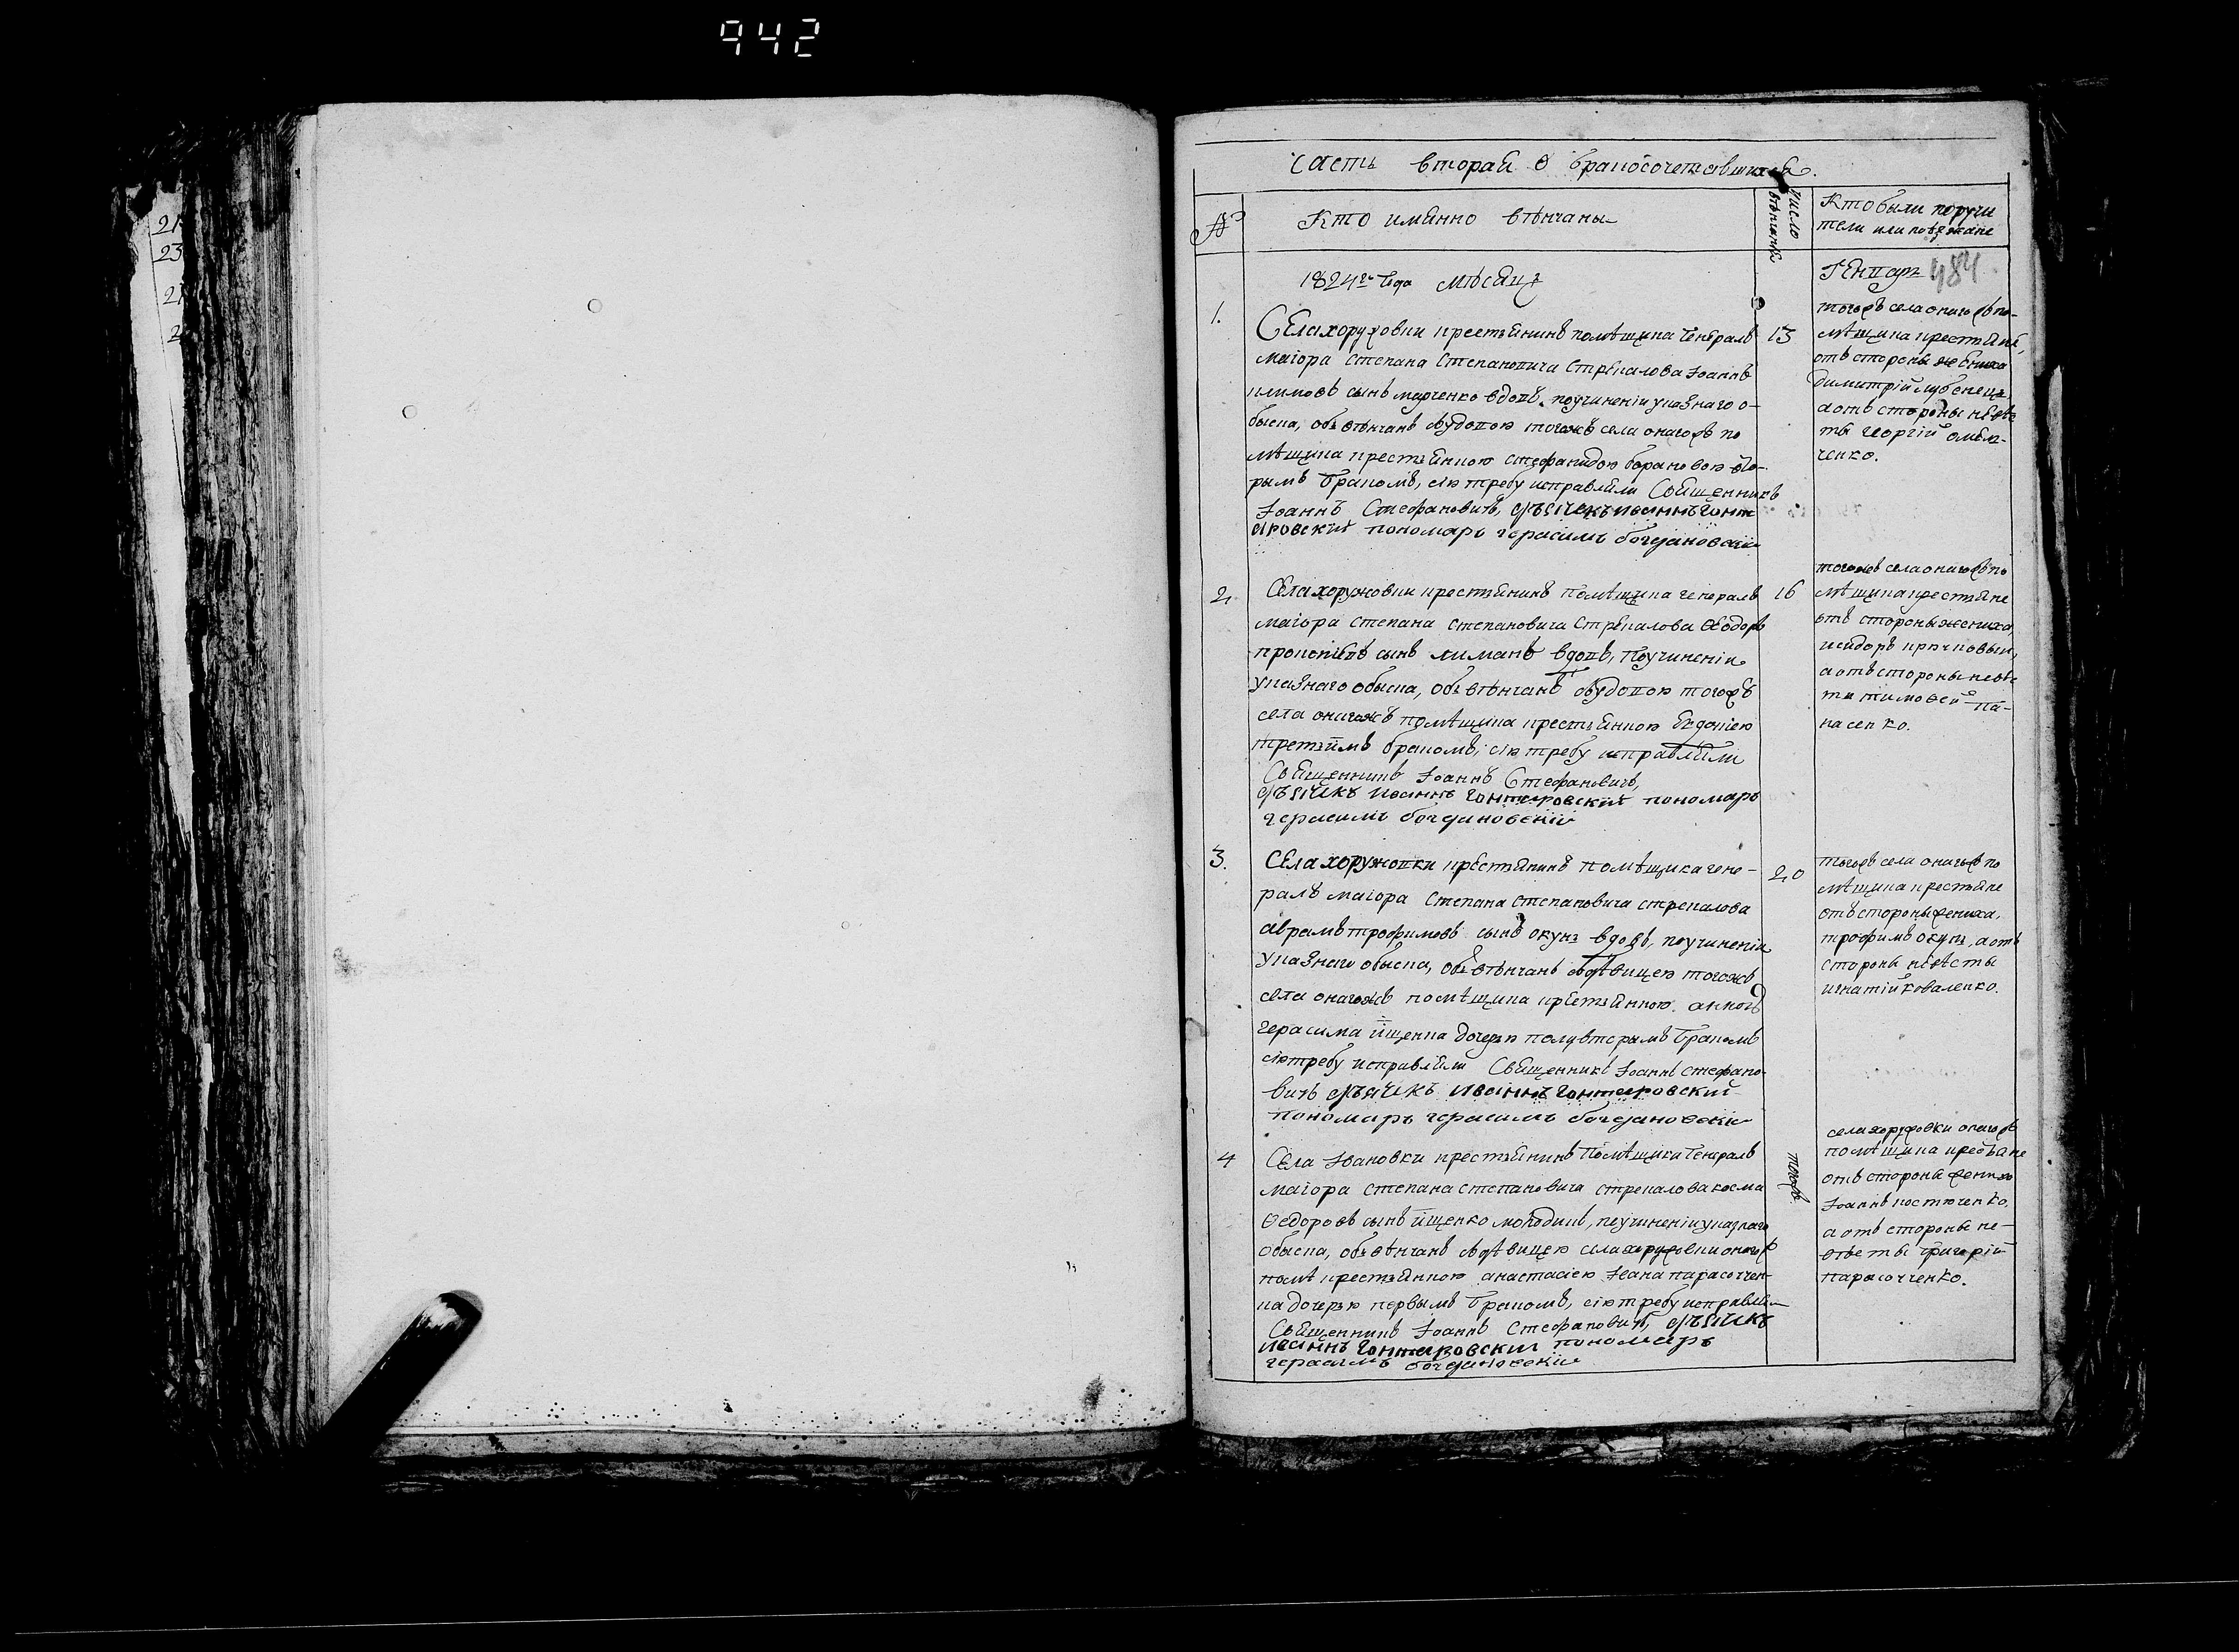 942
21
23
21
2
Часть вторая о бракосочетавшихся.
№
Кто имянно вѣнчаны
Число вѣнчанія
Кто были поручи
тели или поѣзжане
1824го Года мѣсяцъ
Генварь 484
1.
Села хоружовки крестьянинъ помѣщика Генералъ
маіора Степана Степановича Стрекалова Іоаннъ
климовъ сынъ марченко вдовъ, поучиненіи указнаго о-
быска, обвѣнчанъ звдовою тогожъ села оногожъ по
мѣщика крестьянкою стефанидою борановою вто-
рымъ бракомъ, сію требу исправляли Священникъ
Іоаннъ Стефановичъ, дьячекъ иваннъ гонт
аровский пономарь герасимъ богдановскій
13
тогожъ села оногожъ по-
мѣщика крестьяне,
отъ стороны жениха
димитрій лубенецъ
а отъ стороны невѣс
ты георгій омел-
ченко.
2,
Села хоружовки крестьянинъ помѣщика генералъ
маіора степана степановича Стрекалова Ѳеодоръ
прокопіевъ сынъ лиманъ вдовъ, поучиненіи
указнаго обыска, обвѣнчанъ звдовою тогожъ
села оногожъ помѣщика крестьянкою Евдокіею
третьимъ бракомъ, сію требу исправляли
Священникъ Іоаннъ Стефановичъ,
дьячекъ иваннъ гонтаровский пономарь
герасимъ богдановскій
16
тогожъ села оногожъ по
мѣщика крестьяне
отъ стороны жениха,
исидоръ
а отъ стороны невѣс
ти тимоѳей па-
насенко.
3.
Села хоружовки крестьянинъ помѣщика гене-
ралъ маіора Степана степановича стрекалова
аврамъ трофимовъ сынъ окунъ вдовъ, поучиненіи
указнаго обыска, обвѣнчанъ здѣвицею тогожъ
села оногожъ помѣщика крестьянкою
герасима йщенка дочерью полувторымъ бракомъ
сію требу исправляли Священникъ Іоаннъ стефано-
вичъ дьячекъ иваннъ гонтаровский
пономарь герасимъ богдановскій
20
тогожъ села оногожъ по
мѣщика крестьяне
отъ стороны жениха,
трофимъ окунъ, а отъ
стороны невѣсты
игнатій коваленко.
4
Села Ивановки крестьянинъ помѣщика Генералъ
маіора степана степановича стрекалова косма
Ѳедоровъ сынъ йщенко молодикъ, поучиненіи указнаго
обыска, обвѣнчанъ здѣвицею села хоружовки оногожъ
помѣ крестьянкою анастасіею Ивана парасочен-
ка дочерью первымъ бракомъ, сію требу исправляли
Священникъ Іоаннъ Стефановичъ, дьячекъ
иваннъ гонтаровский пономарь
герасимъ богдановскій
тогожъ
села хоружовки оногожъ
помѣщика крестьяне
отъ стороны жениха
Іоаннъ костюченко,
а отъ стороны не-
вѣсты григорій
парасоченко.